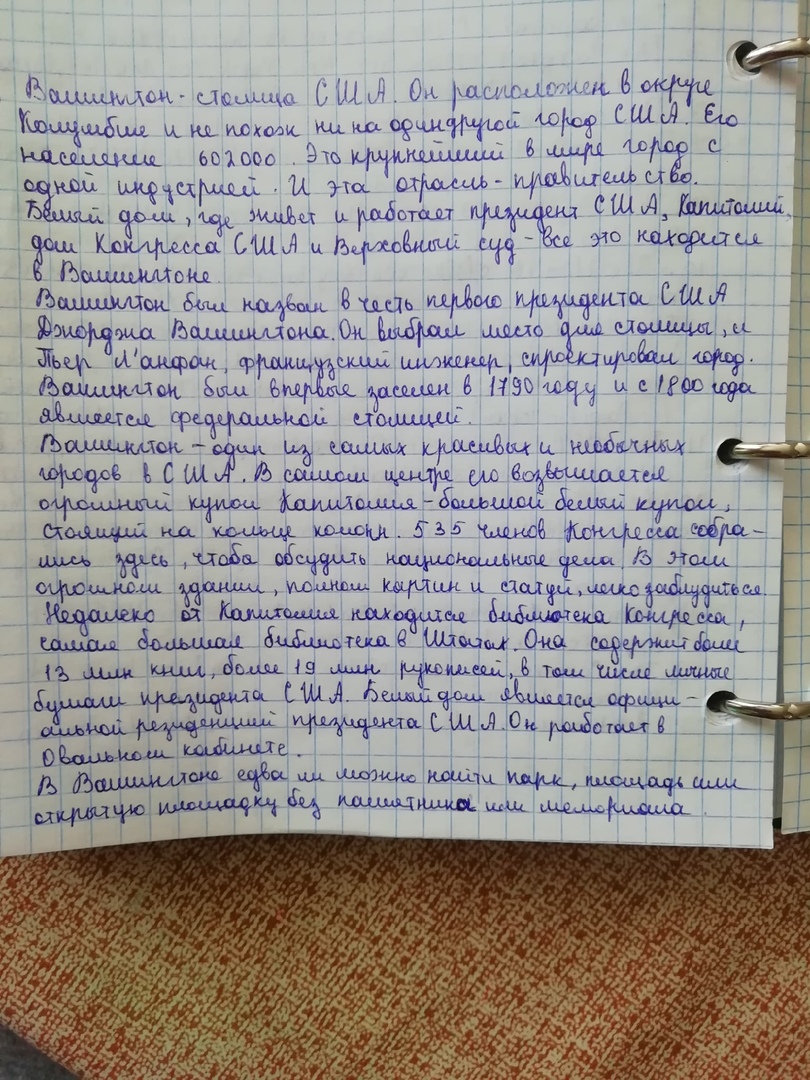 Вашингтон - столица США. Он расположен в округе
Колумбие и не похож ни на одиндругой город США. Его
население 602000. Это крупнейший в мире город с
одной индустрией. И эта отрасль - правительство.
Белый дом, где живет и работает президент США, Капитолий,
дом Конгресса США и Верховный суд - все это находится
в Вашингтоне.
Вашингтон был назван в честь первого президента США
Джорджа Вашингтона. Он выбрал место для столицы, и
Пьер Л'анфан, французский инженер, спроектировал город.
Вашингтон был впервые заселен в 1790 году и с 1800 года
является федеральной столицей.
Вашингтон - один из самых красивых и необычных
городов в США. В самом центре его возвышается
огромный купол Капитолия - большой белый купол,
стоящий на кольце колонн. 535 членов Конгресса собра-
лись здесь, чтобы обсудить национальные дела. В этом
огромном здании, полном картин и статуй, легко заблудиться.
Недалеко от Капитолия находится библиотека Конгресса,
самая большая библиотека в Штатах. Она содержит боле
13 млн книг, более 19 млн рукописей, в том числе личные
бумаги президента США. Белый дом является офици-
альной резиденцией президента США. Он работает в
Овальном кабинете.
В Вашингтоне едва ли можно найти парк, площадь или
открытую площадку без памятника или мемориала.